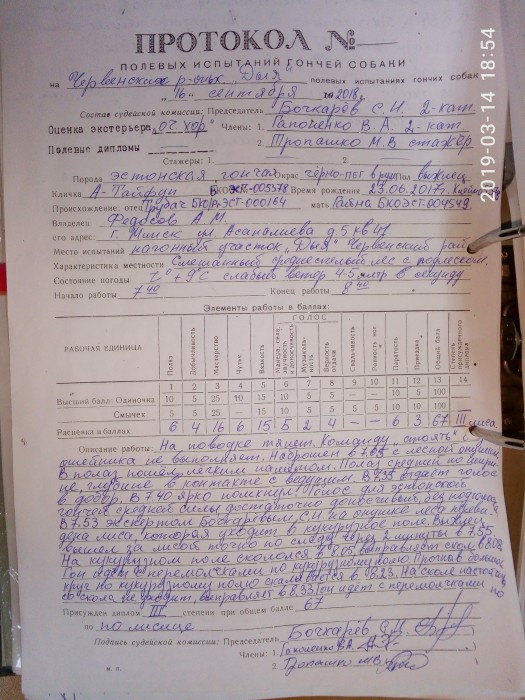 ПРОТОКОЛ №
ПОЛЕВЫХ ИСПЫТАНИЙ ГОНЧЕЙ СОБАКИ
на Червенских р-ных "Дыя" полевых испытаниях гончих собак
"16" сентября 2018 г.
Состав судейской комиссии: Председатель Бочкарёв С.И. 2-кат.
Оценка экстерьера "оч. хор" Члены: 1. Гапоненко В.А. 2-кат.
Полевые дипломы 2. Тропашко М.В стажёр
Стажеры: 1.
Порода эстонская гончая Окрас чёрно-пег в рум Пол выжлец
Кличка А-Тайфун БКОЭСТ-005378 Время рождения 23.06.2017г.
Происхождение: отец БКО ЭСТ-000164 мать Гайна БКОЭСТ-004549
Владелец Федосов А.М.
его адрес: г. Минск ул. д.5 кв 47
Место испытаний нагонный участок "Дыя" Червенский район
Характеристика местности Смешанный среднеспелый лес с подлеском.
Состояние погоды 7°+9°С слабый ветер 4-5 метр в секунду
Начало работы 7 40 Конец работы 8 40
Элементы работы в баллах:
РАБОЧАЯ ЕДИНИЦА
Полаз
Добычливость
Мастерство
Чутье
Вязкость
ГОЛОС
Манера, сила, звучность и доносчивость
Музыкальность
Верность отдачи
Свальчивость
Ровность ног
Паратость
Приездка
Общий балл
Степень присужденного диплома
1 2 3 4 5 6 7 8 9 10 11 12 13 14
Высший балл: Одиночка 10 5 25 10 15 10 5 5 — — 10 5 100
Смычек 5 5 25 — 15 10 5 5 5 5 10 5 100
Расценка в баллах 6 4 16 6 15 5 2 4 — — 6 3 67 III лиса
Описание работы: На поводке тянет. Команду "стоять" без
ошейника не выполняет. Наброшен в 7.05 с лесной опушки.
В полаз пошёл лёгким намётом. Полаз средний по шири-
не, глубине в контакте с ведущим. В 7.35 отдает голос
в добор. В 7.40 ярко помкнул. Голос для эстонской
гончей средней силы, достаточно доносчивый, без
В 7.53 экспертом Бочкарёвым С.И на опушке леса
дена лиса, которая уходит в кукурузное поле. Выжлец
вышел за лисой точно по следу через 2 минуты в 7.55
На кукурузном поле скололся в 8.05, выправляет скол в 8.08
Гон идет с перемолчками по кукурузному полю. Прогнав
круг по кукурузному полю скалывается в 8.23. На сколе настойчив
со скола не уходит. выправляет в 8.33 Гон идёт с перемолчками по
Присужден диплом III степени при общем балле 67
по по лисице
Подпись судейской комиссии: Председатель Бочкарёв С.И.
Члены: 1. Гапоненко В.А.
2. Тропашко М.В
м. п.
2019-03-14 18:54